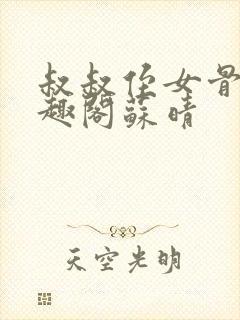 叔叔侄女骨
趣阁蘇晴
天空光明